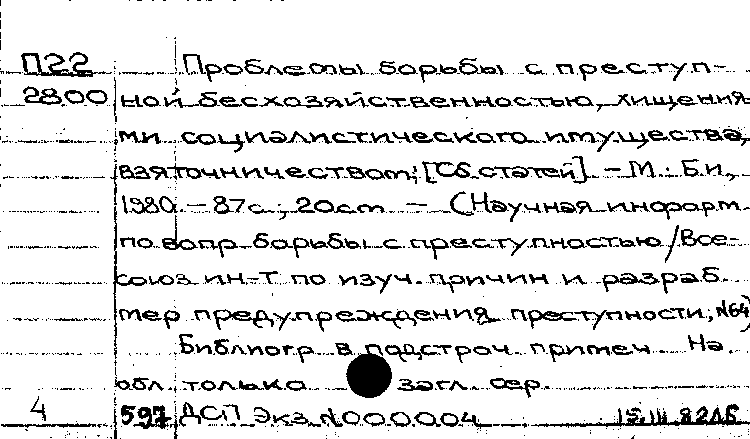 П22 Проблемы борьбы с преступ-
2800 ной бесхозяйственностью, хищения
ми социалистического имущества,
взяточничеством; [Сб. статей]. – М.: Б.и.,
1980. – 87с.; 20см – (Научная информ.
по вопр. борьбы с преступностью / Все-
союз. ин-т по изуч. причин и разраб.
мер предупреждения преступности; №64)
Библиогр. в подстроч. примеч. На
обл. только загл. сер.
4 597 ДСП Экз. №000004 15.III.82